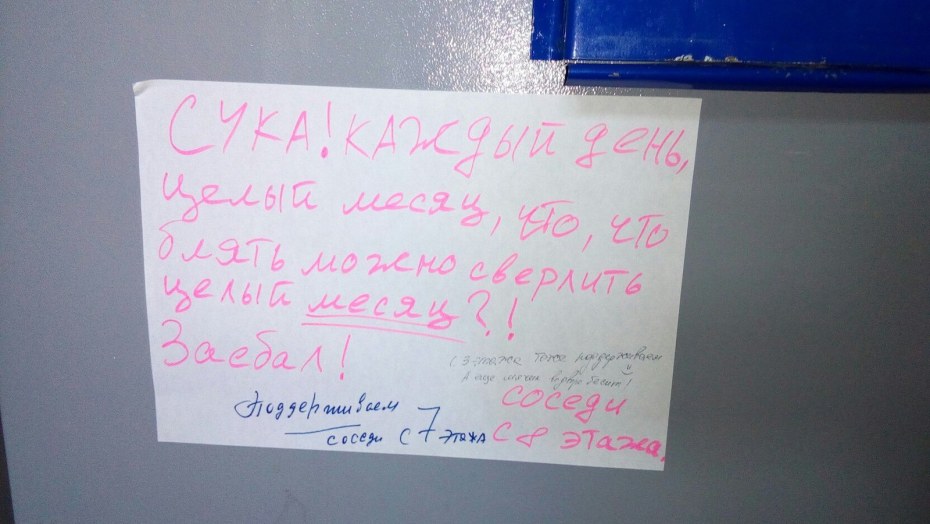 СУКА! КАЖДЫЙ ДЕНЬ,
целый месяц, что, что
блять можно сверлить
целый месяц?!
Заебал!
С 3 этажа тоже поддерживаем
А еще
соседи
с 8 этажа.
Поддерживаем
соседи с 7 этажа